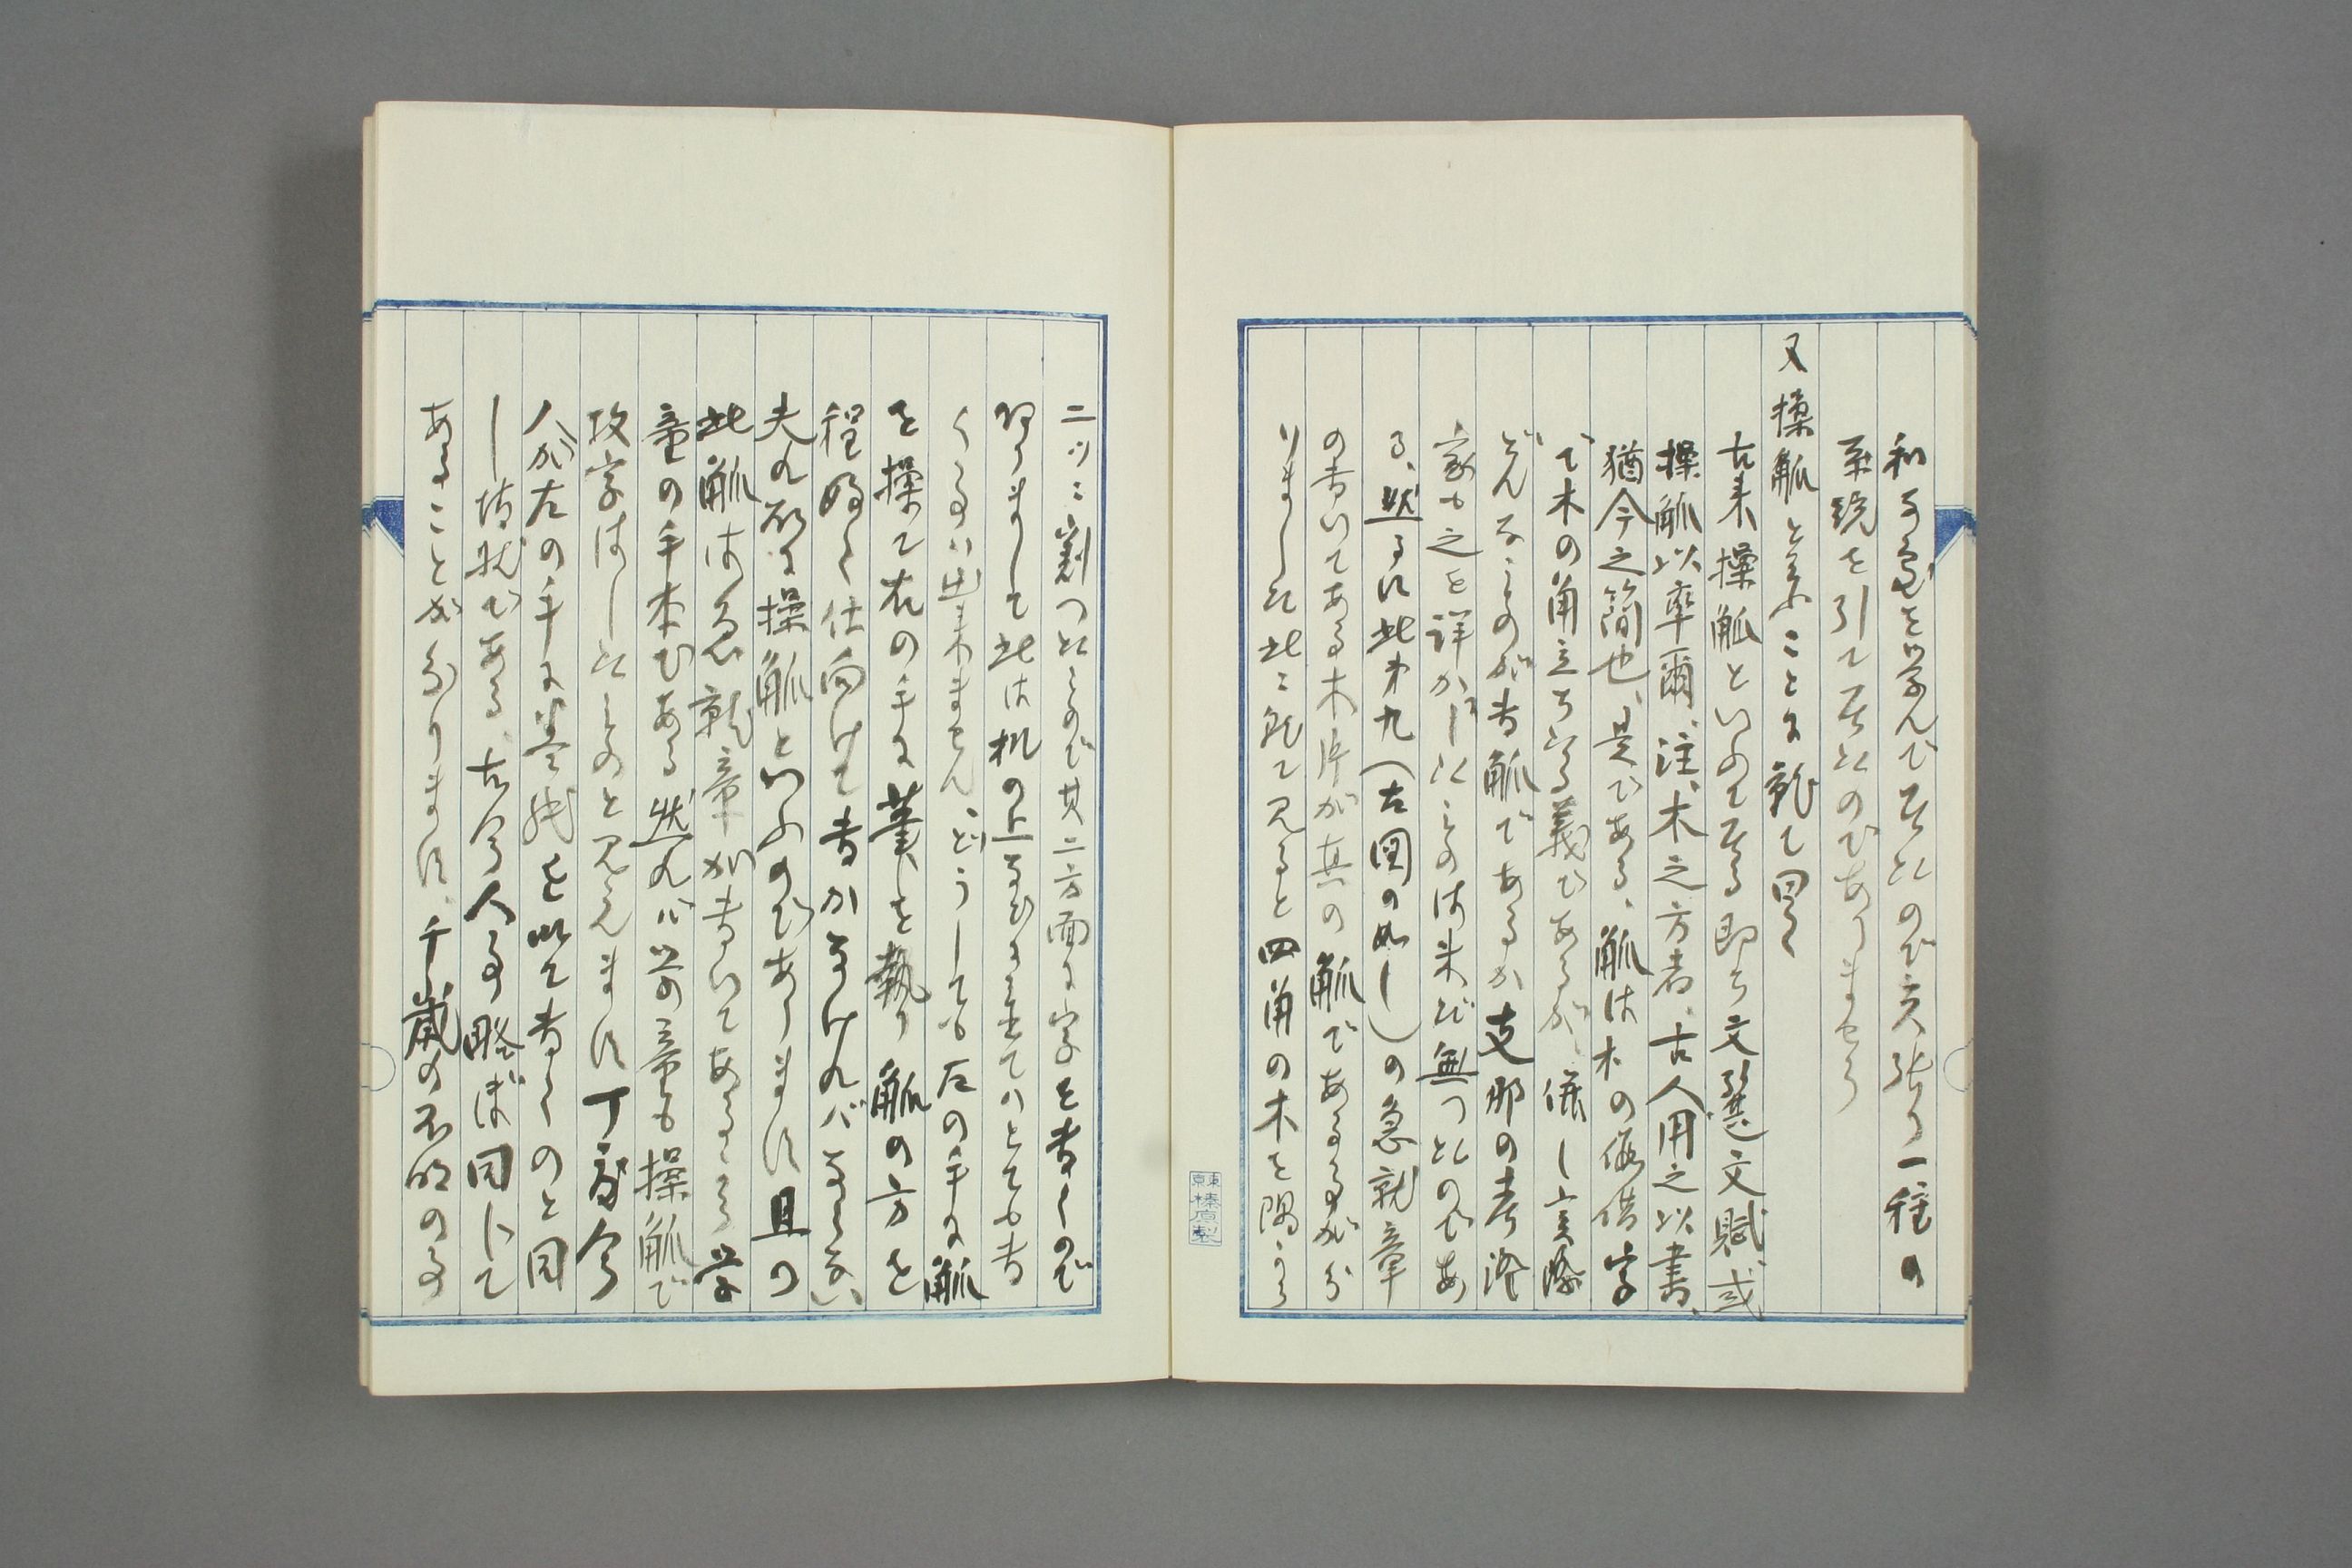 和る急を学んで居たので矢張り一種の
系統を引て居たのでありませう
又操觚と云ふことに就て曰く
古来操觚といふて居る即ち文選文賦、或
操觚以率爾、注、木之方者、古人用之以書、
猶今之簡也、是である、觚は木の仮借字
で木の角立ち・る義であるが、併し実際
どんなものが書觚であるか支那の考証
家も之を詳かにしたものは未だ無つたのであ
る、然るに此第九(左図の如し)の急就章
の書いてある木片が其の觚である事が分
りました此に就て見ると四角の木を隅から
二ツに割つたもので其二方面に字を書くので
ありまして此は机の上などに立てはとても書
くことは出来ません、どうしても左の手に觚
を操て右の手に筆を執り觚の方を
程好く仕向けて書かなければならない
夫れ故に操觚といふのでありますな且つ
此觚は急就章が書いてあるから学
童の手本である然れば学童も操觚で
攻字はしたものと見えます丁度今
人が左の手に巻紙を以て書くのと同
じ情状である、古今人事略ぼ同じて
あることが分ります、千歳の不明の事
東京榛原製